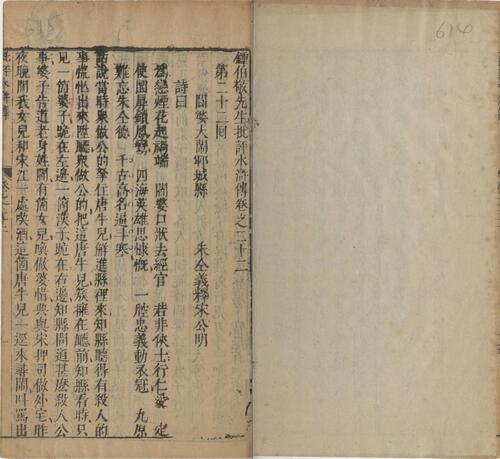 鍾伯敬先生批評水滸傳卷之二十二
第二十二回
閻婆大鬧鄆城縣　朱仝義釋宋公明
詩曰
為戀煙花起禍端　閻婆口狀去經官　若非俠士行仁愛　定
使圜扉鎖鳳鸞　四海英雄思慷慨　一腔忠義動衣冠　九原
難忘朱仝德　千古高名逼斗寒
話說當時眾做公的拏住唐牛兒解進縣裡來知縣聽得有殺人的
事慌忙出來陞廳眾做公的把這唐牛兒簇擁在廳前知縣看時只
見一箇婆子跪在左邊一箇漢子跪在右邊知縣問道甚麼殺人公
事婆子告道老身姓閻有箇女兒喚做婆惜典與宋押司做外宅昨
夜晚間我女兒和宋江一處喫酒這箇唐牛兒一逕來尋鬧叫罵出
批評水滸傳
卷之二十二
614